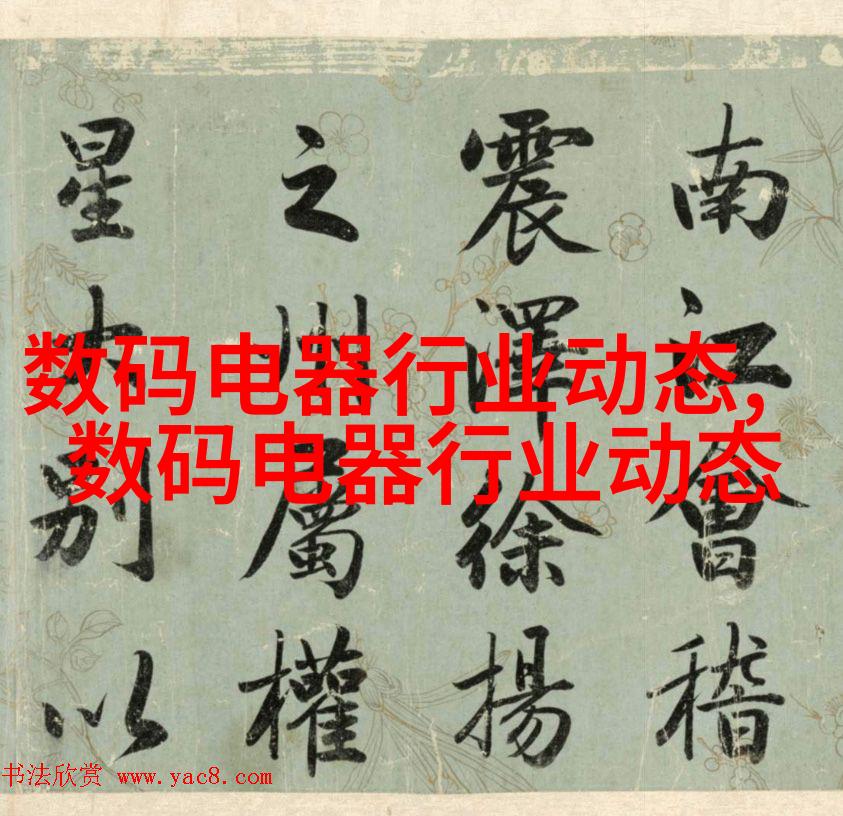 南江會稽
震澤徐揚
之州屬權
星大別以
数码电器行业动态,
数码电器行业动态
书法欣赏 www.yac8.com